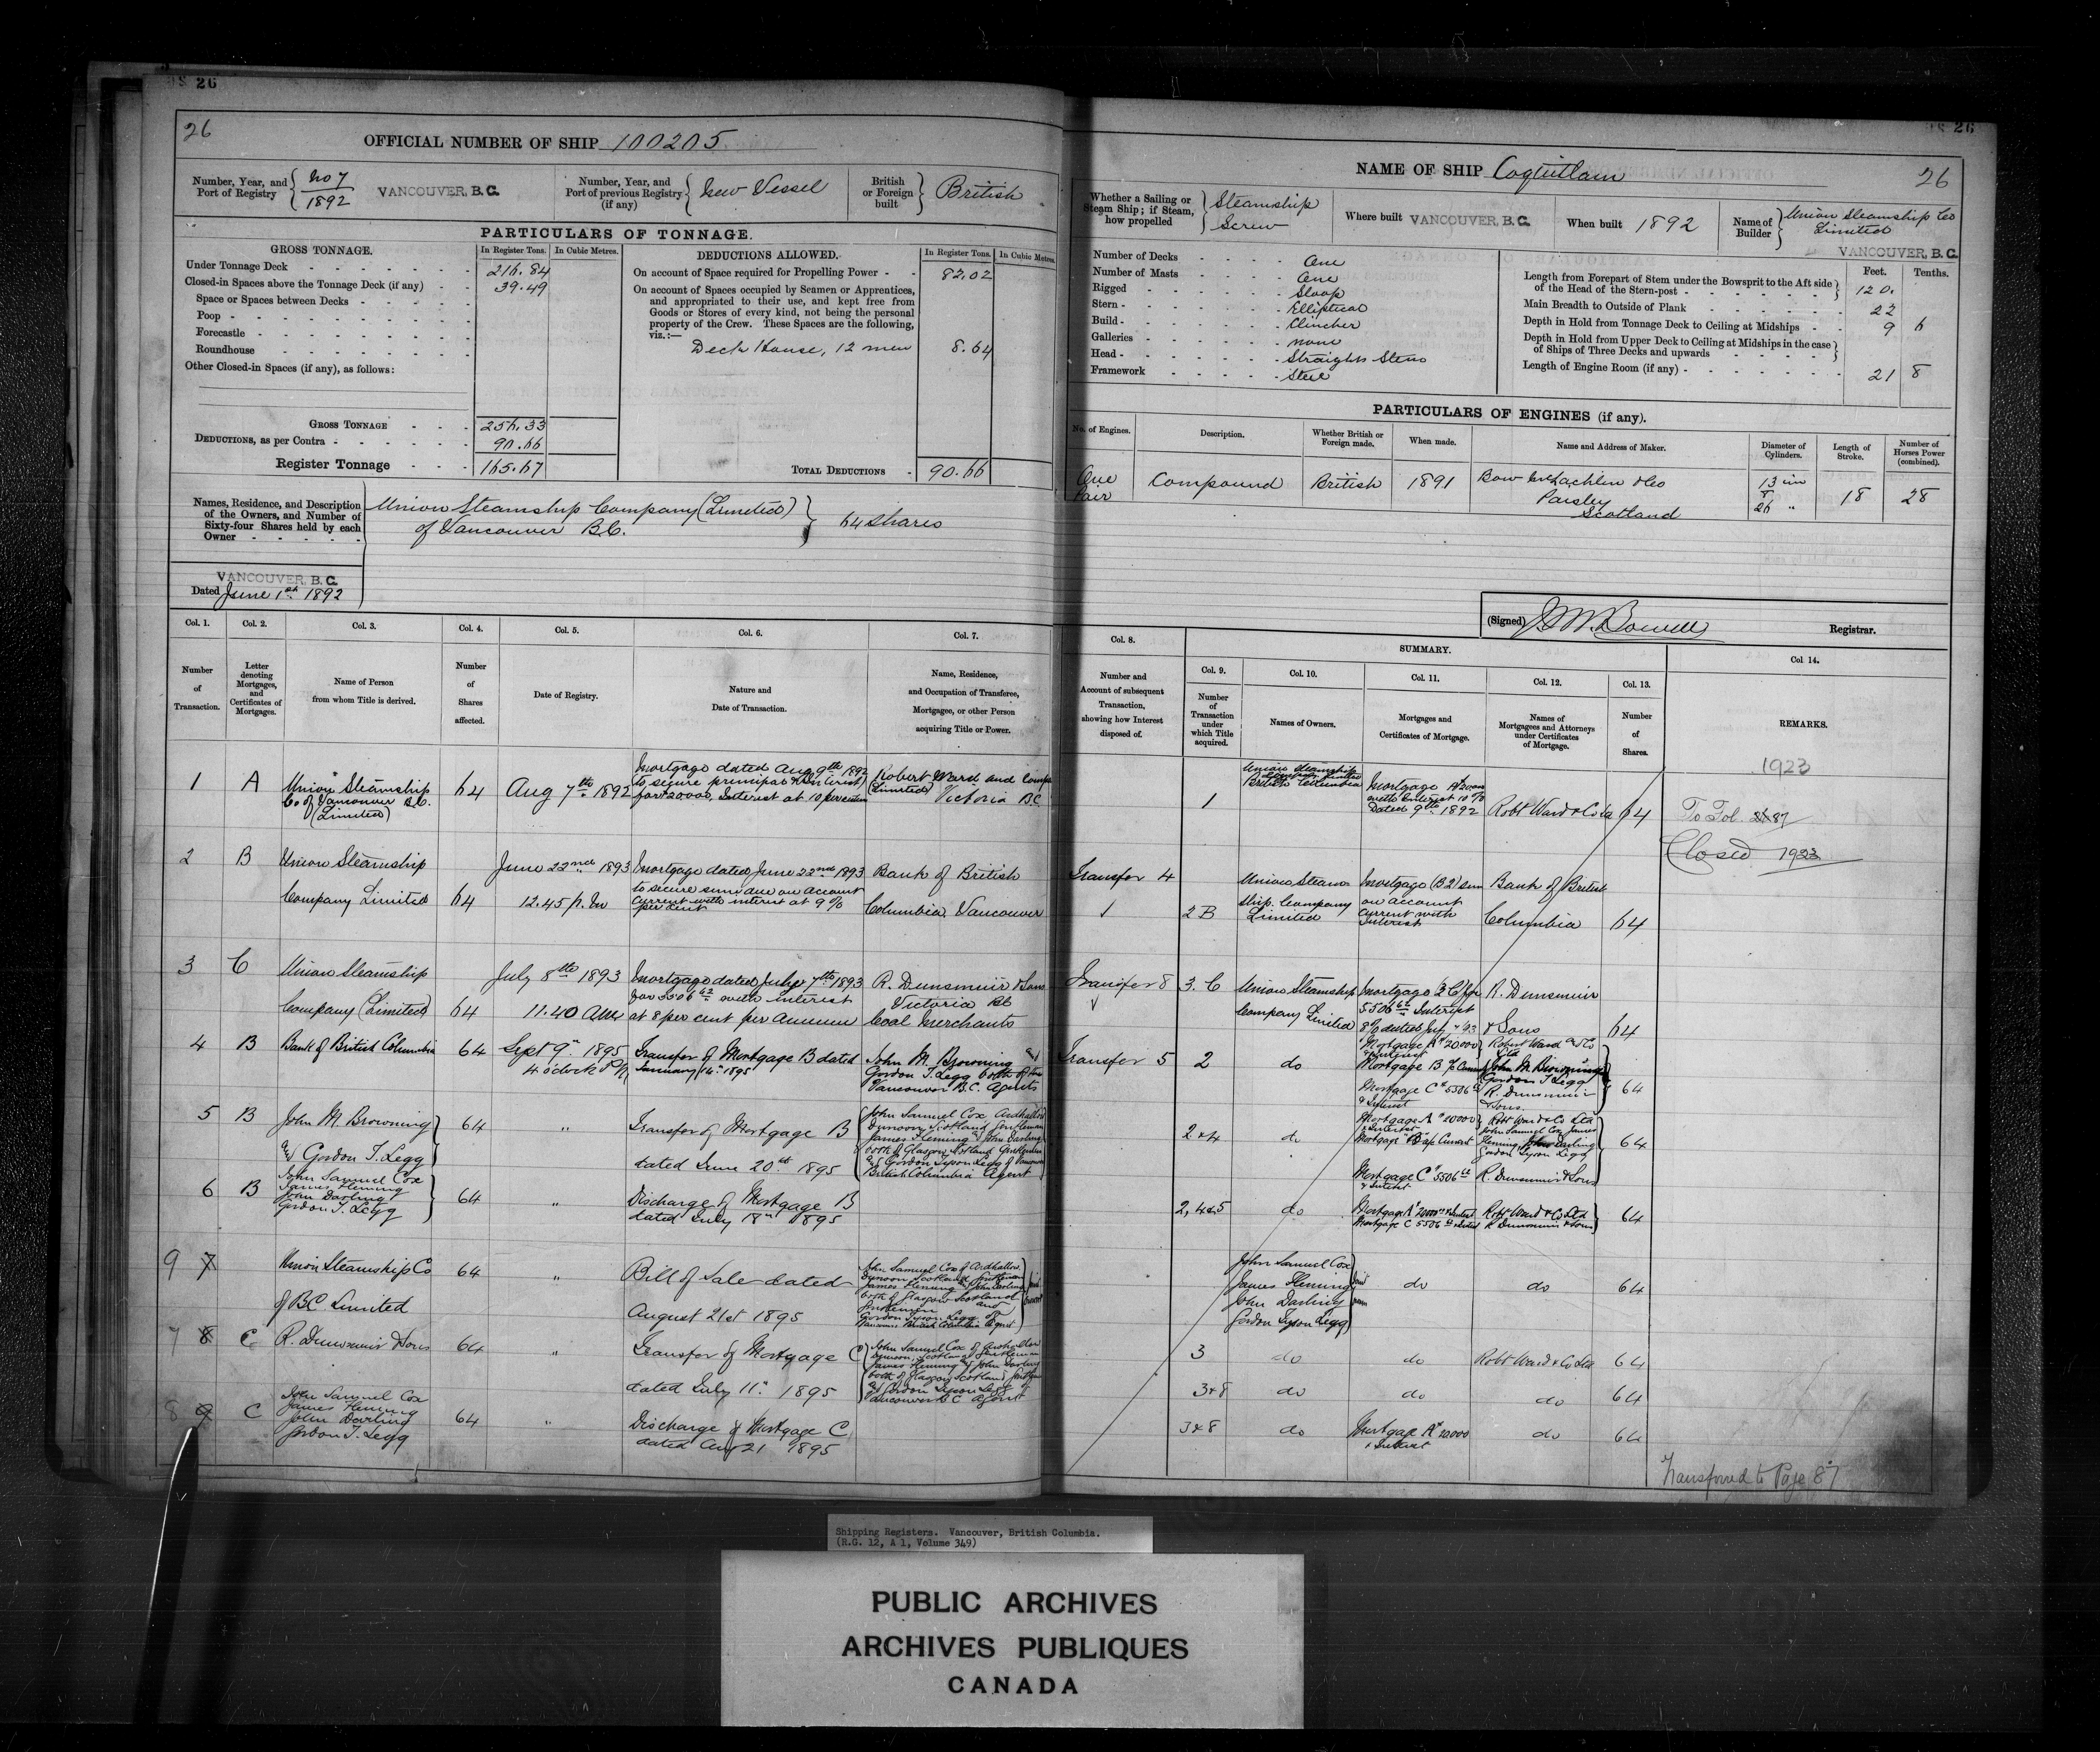 26
26
OFFICIAL NUMBER OF SHIP 100205
Number, Year, and Port of Registry
No 7
1892
VANCOUVER, B.C.
Number, Year, and Port of previous Registry (if any)
New Vessel
British or Foreign built
British
PARTICULARS OF TONNAGE.
GROSS TONNAGE.
In Register Tons.
In Cubic Metres.
Under Tonnage Deck 216.84
Closed-in Spaces above the Tonnage Deck (if any) 39.49
Space or Spaces between Decks
Poop
Forecastle
Roundhouse
Other Closed-in Spaces (if any), as follows:
GROSS TONNAGE 256.33
DEDUCTIONS, as per Contra 90.66
Register Tonnage 165.67
DEDUCTIONS ALLOWED.
In Register Tons.
In Cubic Metres.
On account of Space required for Propelling Power 82.02
On account of Spaces occupied by Seamen or Apprentices,
and appropriated to their use, and kept free from
Goods or Stores of every kind, not being the personal
property of the Crew. These Spaces are the following,
viz.:—
Deck House, 12 men 8.64
TOTAL DEDUCTIONS 90.66
Names, Residence, and Description
of the Owners, and Number of
Sixty-four Shares held by each
Owner
Union Steamship Company (Limited)
of Vancouver B.C.
64 shares
VANCOUVER, B.C.
Dated June 1st 1892
26
NAME OF SHIP Coquitlam
26
Whether a Sailing or Steam Ship; if Steam, how propelled
Steamship
Screw
Where built VANCOUVER, B.C.
When built 1892
Name of Builder
Union Steamship Co
Limited
VANCOUVER, B.C.
Number of Decks One
Number of Masts One
Rigged Sloop
Stern Elliptical
Build Clincher
Galleries none
Head Straight Stem
Framework Steel
Feet.
Tenths.
Length from Forepart of Stem under the Bowsprit to the Aft side
of the Head of the Stern-post 120.
Main Breadth to Outside of Plank 22
Depth in Hold from Tonnage Deck to Ceiling at Midships 9 6
Depth in Hold from Upper Deck to Ceiling at Midships in the case
of Ships of Three Decks and upwards
Length of Engine Room (if any) 21 8
PARTICULARS OF ENGINES (if any).
No. of Engines.
Description.
Whether British or Foreign made.
When made.
Name and Address of Maker.
Diameter of Cylinders.
Length of Stroke.
Number of Horses Power (combined).
One Pair
Compound
British
1891
Bow McLachlan & Co
Paisley
Scotland
13 in
26 "
18
28
(Signed) J M Bowell
Registrar.
Col. 1.
Col. 2.
Col. 3.
Col. 4.
Col. 5.
Col. 6.
Col. 7.
Number of Transaction.
Letter denoting Mortgages, and Certificates of Mortgages.
Name of Person from whom Title is derived.
Number of Shares affected.
Date of Registry.
Nature and Date of Transaction.
Name, Residence, and Occupation of Transferee, Mortgagee, or other Person acquiring Title or Power.
Col. 8.
Number and Account of subsequent Transaction, showing how Interest disposed of.
SUMMARY.
Col. 9.
Number of Transaction under which Title acquired.
Col. 10.
Names of Owners.
Col. 11.
Mortgages and Certificates of Mortgage.
Col. 12.
Names of Mortgagees and Attorneys under Certificates of Mortgage.
Col. 13.
Number of Shares.
Col 14.
REMARKS.
1 A
Union Steamship
Co of Vancouver B.C.
(Limited)
64
Aug 9th 1892
Mortgage dated Aug 9th 1892
to secure principal & (Interest)
for $20000, Interest at 10 per cent
Robert Ward and Comp
(Limited)
Victoria BC
1
Union Steamship
British Columbia
Mortgage A $20000
with Interest at 10 %
Dated 9th 1892
Robt Ward & Co Ld
64
1923
To Fol. 87
Closed 1923
2 B
Union Steamship
Company Limited
64
June 22nd 1893
12.45 p.m
Mortgage dated June 22nd 1893
to secure sum due on account
current with interest at 9 %
per cent
Bank of British
Columbia, Vancouver
Transfer 4
2 B
Union Steam
ship Company
Limited
Mortgage (B2) sum
on account
current with
Interest
Bank of British
Columbia
64
3 C
Union Steamship
Company (Limited)
64
July 8th 1893
11.40 AM
Mortgage dated July 7th 1893
for 5506 62 with interest
at 8 per cent per annum
R. Dunsmuir & Sons
Victoria BC
Coal Merchants
Transfer 8
3. C
Union Steamship
Company Limited
Mortgage 3 C for
5506 62 Interest
R. Dunsmuir
& Sons
64
4 B
Bank of British Columbia
64
Sept 9th 1895
4 o'clock P.M
Transfer of Mortgage B dated
January 14th 1895
John M. Browning and
Gordon T. Legg both of
Vancouver B.C. Agents
Transfer 5
2
do
Mortgage A $20000
& Interest
Mortgage B
Mortgage C $5506 62
& Interest
Robert Ward & Co
Ltd
John M. Browning &
Gordon T Legg
R. Dunsmuir
& Sons.
64
5 B
John M. Browning
& Gordon T. Legg
64
"
Transfer of Mortgage B
dated June 20th 1895
John Samuel Cox Ardhallow
Dunoon Scotland Gentleman
James Fleming & John Darling
both of Glasgow Scotland Gentlemen
& Gordon Tyson Legg of Vancouver
British Columbia Agent
2 & 4
do
Mortgage A $20000
& Interest
Mortgage B a/c Current
Mortgage C $5506 62
& Interest
Robt Ward & Co Ltd
John Samuel Cox James
Fleming, John Darling
Gordon Tyson Legg
R. Dunsmuir & Sons
64
6 B
John Samuel Cox
James Fleming
John Darling
Gordon T. Legg
64
"
Discharge of Mortgage B
dated July 18th 1895
2, 4 & 5
do
Mortgage A $20000 & Interest
Mortgage C 5506 62 & Interest
Robt Ward & Co Ltd
R Dunsmuir & Sons
64
9 7
Union Steamship Co
of BC Limited
64
"
Bill of Sale dated
August 21st 1895
John Samuel Cox of Ardhallow
Dunoon Scotland Gentleman
James Fleming & John Darling
both of Glasgow Scotland
Gentlemen and
Gordon Tyson Legg of
Vancouver British Columbia Agent
John Samuel Cox
James Fleming
John Darling
Gordon Tyson Legg
do
do
64
7 8 C
R. Dunsmuir & Sons
64
"
Transfer of Mortgage C
dated July 11th 1895
John Samuel Cox of Ardhallow
Dunoon Scotland Gentleman
James Fleming & John Darling
both of Glasgow Scotland Gentlemen
& Gordon Tyson Legg
Vancouver B C Agent
3
do
do
Robt Ward & Co Ltd
64
3 & 8
do
do
do
64
8 9 C
John Samuel Cox
James Fleming
John Darling
Gordon T. Legg
64
"
Discharge of Mortgage C
dated Aug 21 1895
3 & 8
do
Mortgage A $20000
& Interest
do
64
Transferred to Page 87
Shipping Registers. Vancouver, British Columbia.
(R.G. 12, A 1, Volume 349)
PUBLIC ARCHIVES
ARCHIVES PUBLIQUES
CANADA